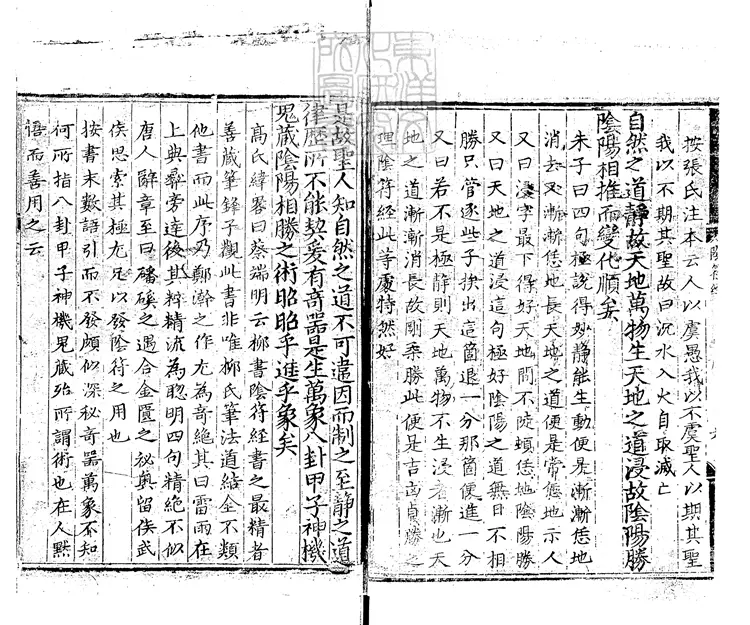 按張氏注本云人以虞愚我以不虞聖人以期其聖
我以不期其聖故曰沉水入火自取滅亡
自然之道靜故天地萬物生天地之道浸故陰陽勝
陰陽相推而變化順矣
朱子曰四句極說得妙靜能生動便是漸漸恁地
消去又漸漸恁地長天地之道便是常恁地示人
又曰浸字最下得好天地間不陡頓恁地陰陽勝
又曰天地之道浸這句極好陰陽之道無日不相
勝只管逐些子挨出這箇退一分那箇便進一分
又曰若不是極靜則天地萬物不生浸者漸也天
地之道漸漸消長故剛柔勝此便是吉凶貞勝之
理陰符經此等處特然好
是故聖人知自然之道不可違因而制之至靜之道
律歷所不能契爰有奇器是生萬象八卦甲子神機
鬼藏陰陽相勝之術昭昭乎進乎象矣
高氏緯畧曰蔡端明云柳書陰符經書之最精者
善藏筆鋒子觀此書非唯柳氏筆法遒結全不類
他書而此序乃鄭澣之作尤為奇絕其曰雷雨在
上典彝旁達後其粹精流為聰明四句精絕不似
唐人辭章至曰磻磎之遇合金匱之祕奧留侯武
侯思索其極尤足以發陰符之用也
按書末數語引而不發頗似深秘奇器萬象不知
何所指八卦甲子神機鬼藏殆所謂術也在人默
語而善用之云
陰符經
六